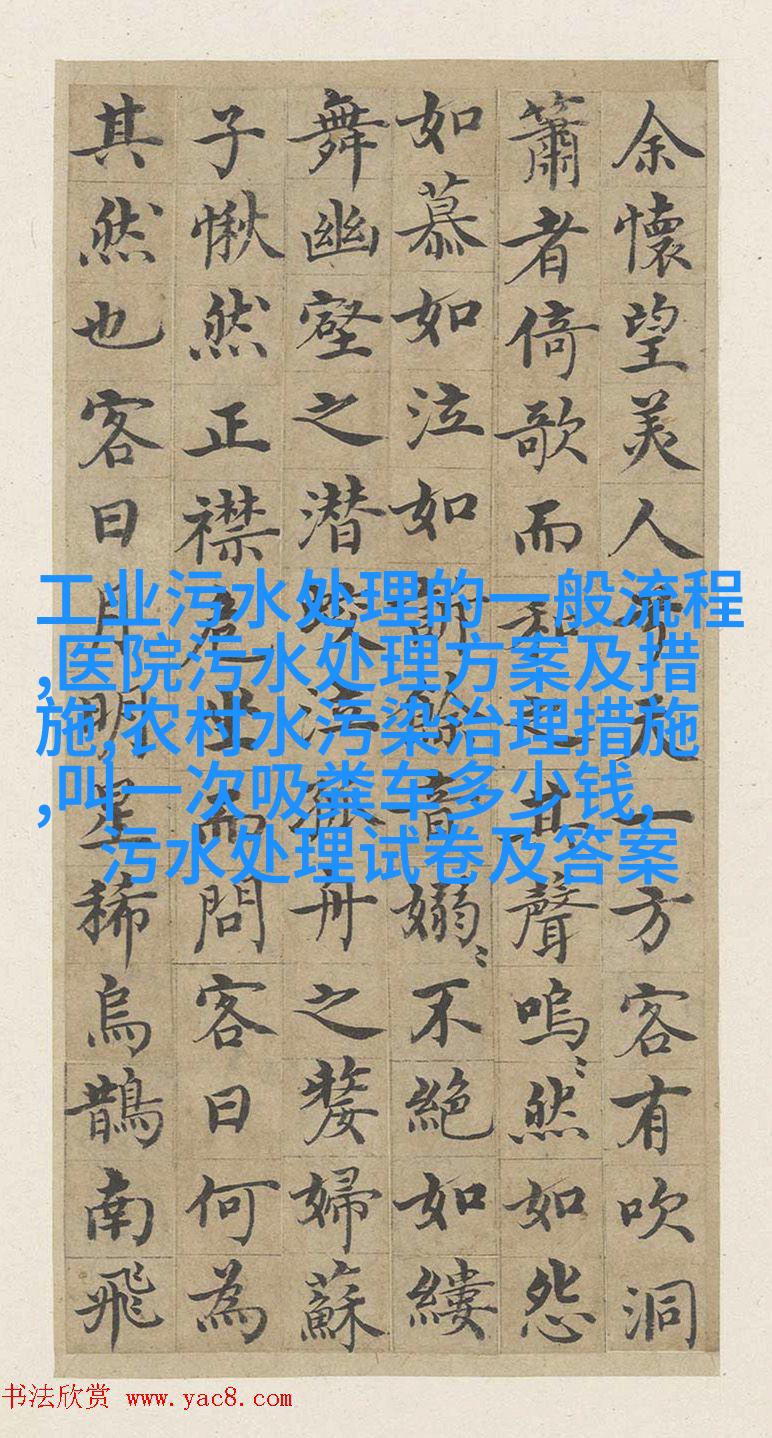 余懷望美人兮天一方客有吹洞
簫者倚歌而和之其聲嗚〻然如怨
如慕如泣如訴餘音嫋〻不絶如縷
舞幽壑之潜蛟泣孤舟之嫠婦蘇
子愀然正襟危坐而問客曰何為
其然也客曰月明星稀烏鵲南飛
工业污水处理的一般流程
,医院污水处理方案及措
施,农村水污染治理措施
,叫一次吸粪车多少钱,
污水处理试卷及答案
书法欣赏 www.yac8.com